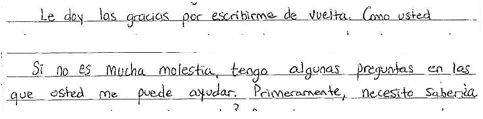 Le doy las gracias por escribirme de vuelta. Como usted
Si no es mucha molestia, tengo algunas preguntas en las
que usted me puede ayudar. Primeramente, necesito saber
?